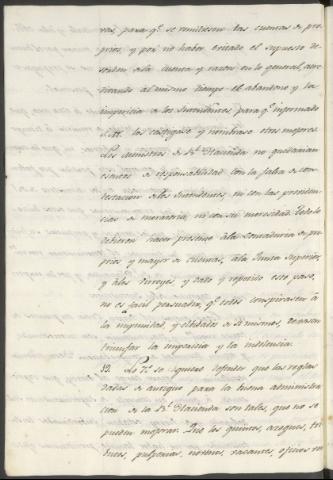 ras, para q.e se remitiesen las cuentas de pro-
prios, y por no haber evitado el supuesto de-
sorden de la cuenta y razon en lo general, acre-
ditando al mismo tiempo el abandono y la
impericia de los Intendentes, para q.e informado
S.M. los castigase y nombrase otros mejores.
Los ministros de R.l Hacienda no quedarian
esentos de responsabilidad con la falta de con-
testacion de los Intendentes, ni con las providen-
cias de moratoria, ni con su morosidad. Todo lo
debieron hacer presente à la contaduria de pro-
prios y mayor de cuentas, à la Junta Superior,
y à los Virreyes, y dado y repetido este paso,
no es facil persuadir q.e todos conspirasen à
la impunidad, y olvidados de si mismos, dexasen
triunfar la impericia y la insolencia.
32. Lo 7.o se siguen infentes que las reglas
dadas de antiguo para la buena administra-
cion de la R.l Hacienda son tales, que no se
pueden mejorar. Que los quintos, azogues, tri-
butos, pulperias, novenos, vacantes, oficios ven